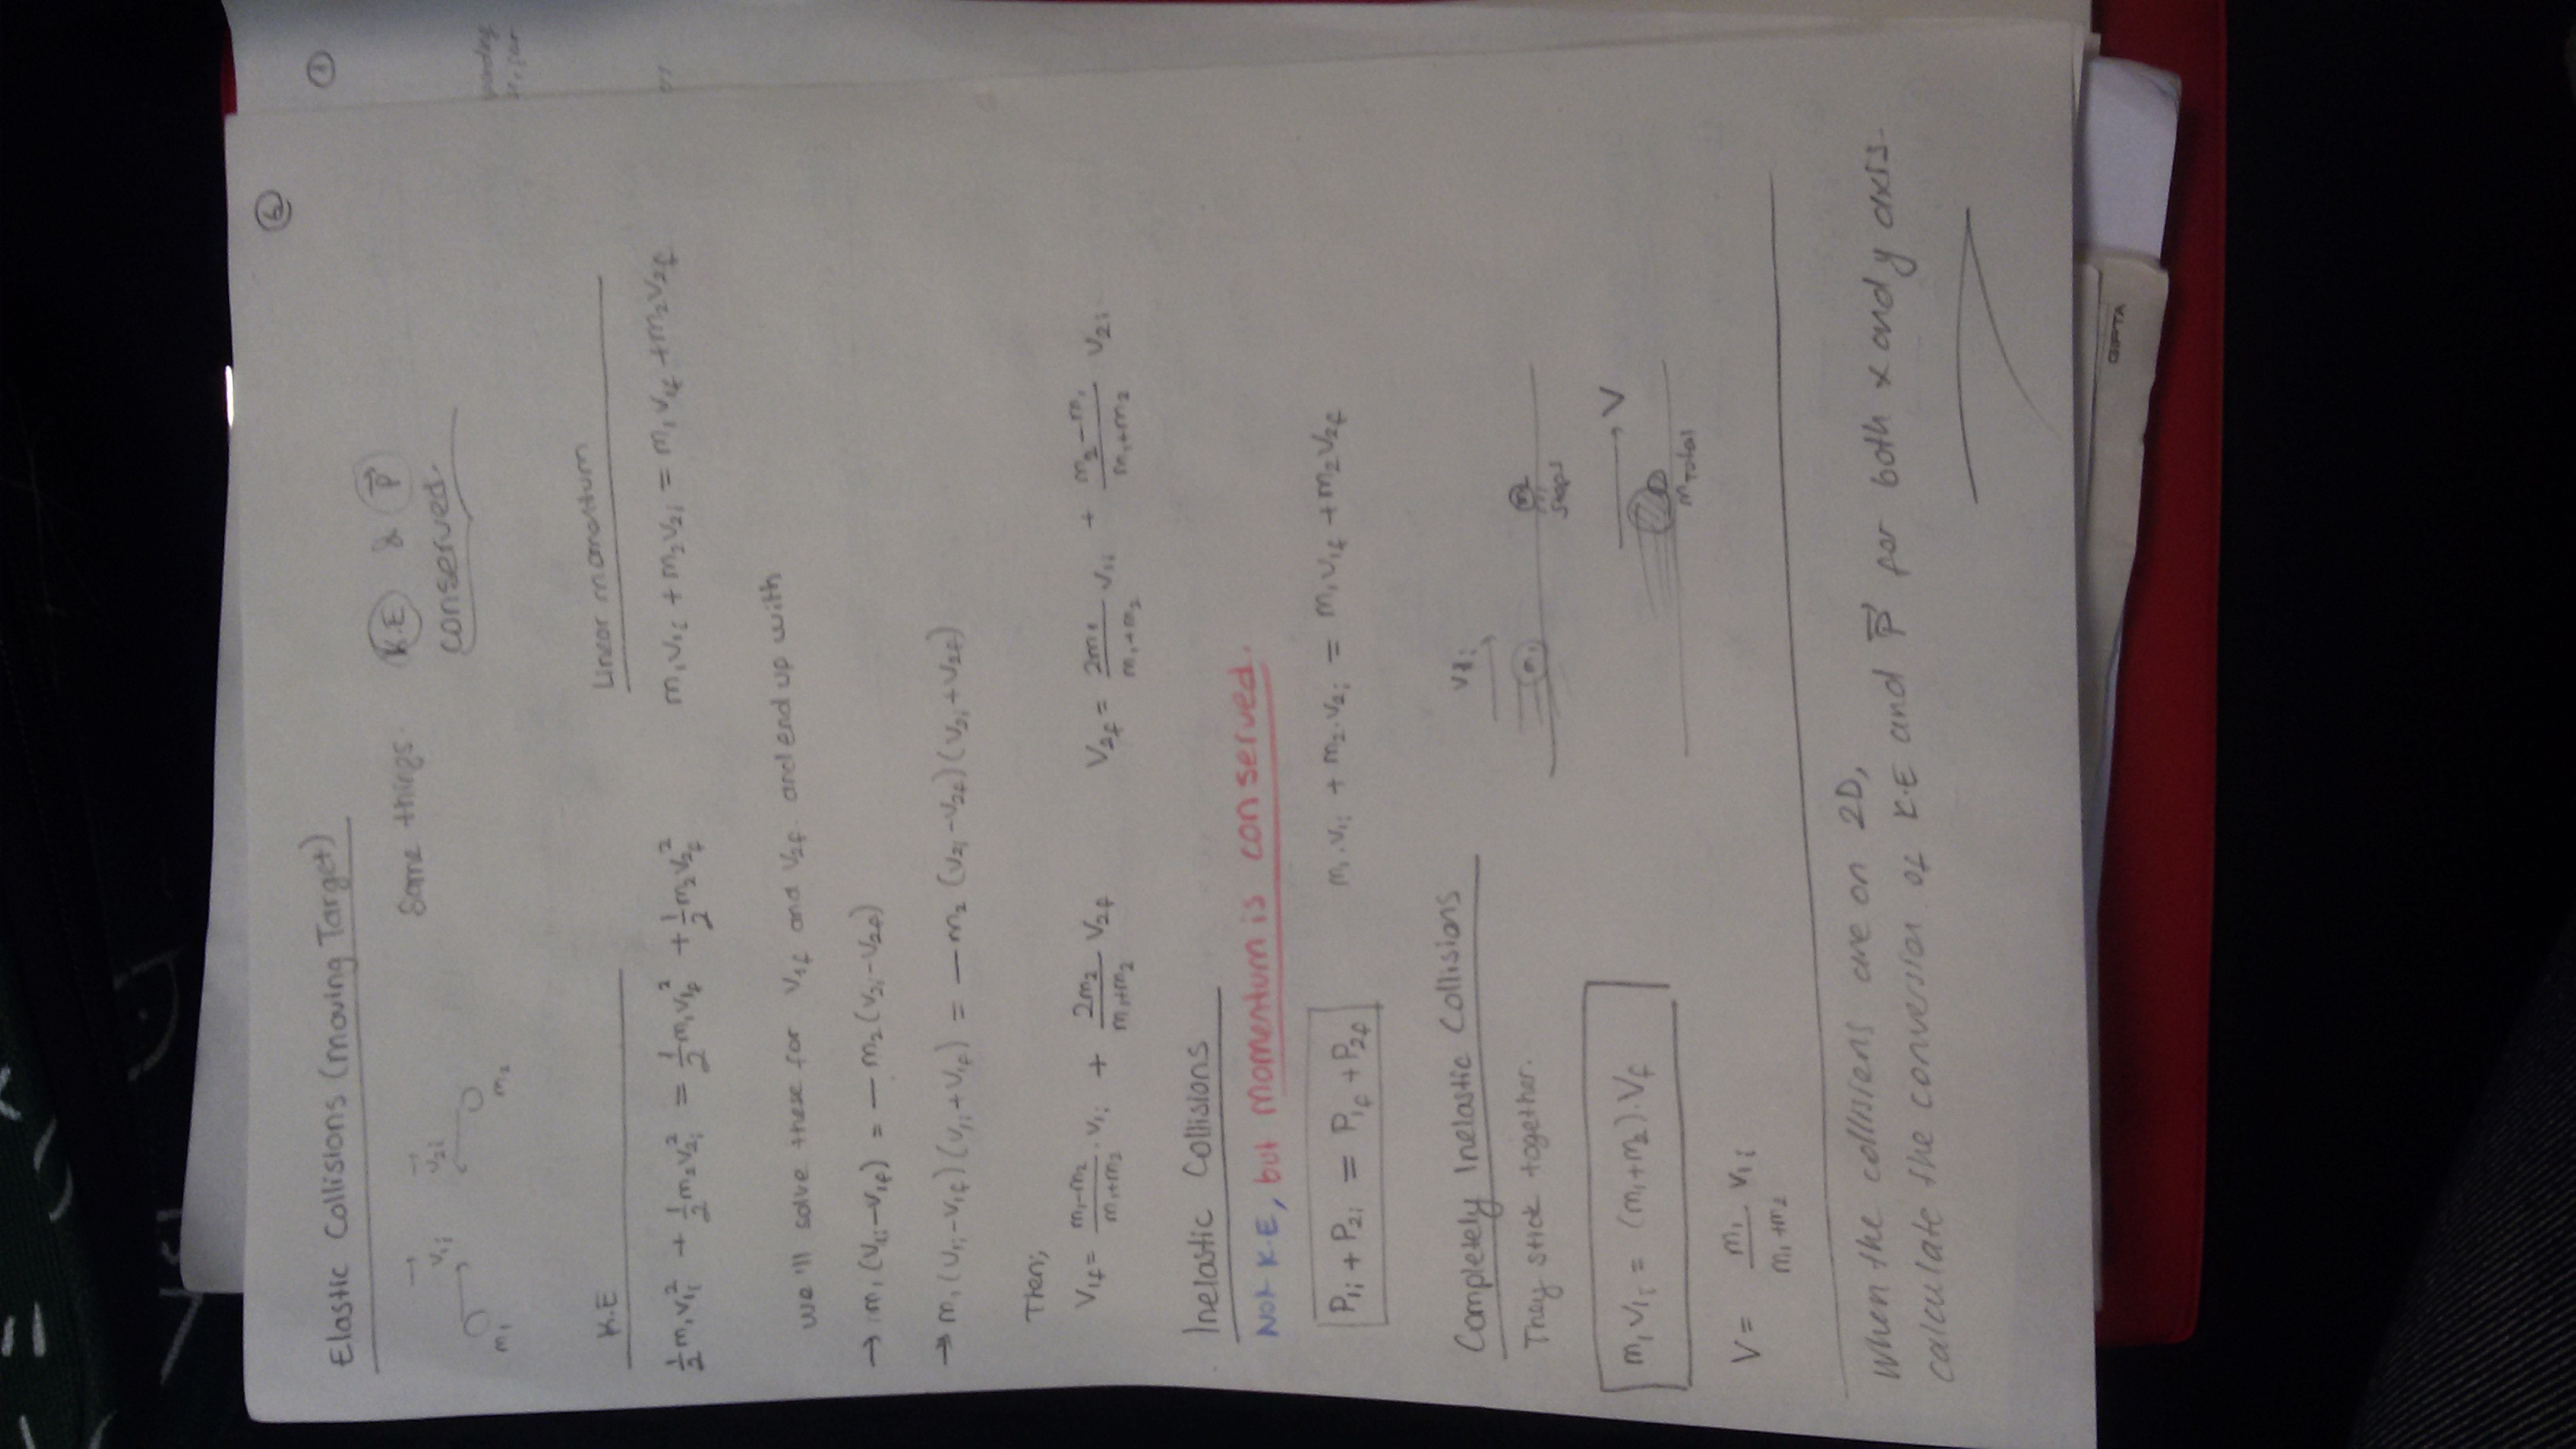 6
Elastic Collisions (Moving Target)
v1i v2i
Same things. K.E & P
conserved.
m1 m2
1
K.E
Linear momentum
1/2 m1v1i² + 1/2 m2v2i² = 1/2 m1v1f² + 1/2 m2v2f²
m1v1i + m2v2i = m1v1f + m2v2f
we'll solve these for v1f and v2f. and end up with
→ m1(v1i-v1f) = - m2(v2i-v2f)
→ m1(v1i-v1f)(v1i+v1f) = - m2 (v2i-v2f)(v2i+v2f)
Then;
V1f = m1-m2/m1+m2 . v1i + 2m2/m1+m2 V2f
V2f = 2m1/m1+m2 v1i + m2-m1/m1+m2 v2i
Inelastic Collisions
Not K.E, but momentum is conserved.
P1i + P2i = P1f + P2f
m1.v1i + m2.v2i = m1v1f + m2v2f
Completely Inelastic Collisions
They stick together.
m1
m2
stops
m1v1i = (m1+m2).Vf
V
mTotal
V = m1/m1+m2 v1i
When the collisions are on 2D,
calculate the conversion of K.E and P for both x and y axis.
GIPTA